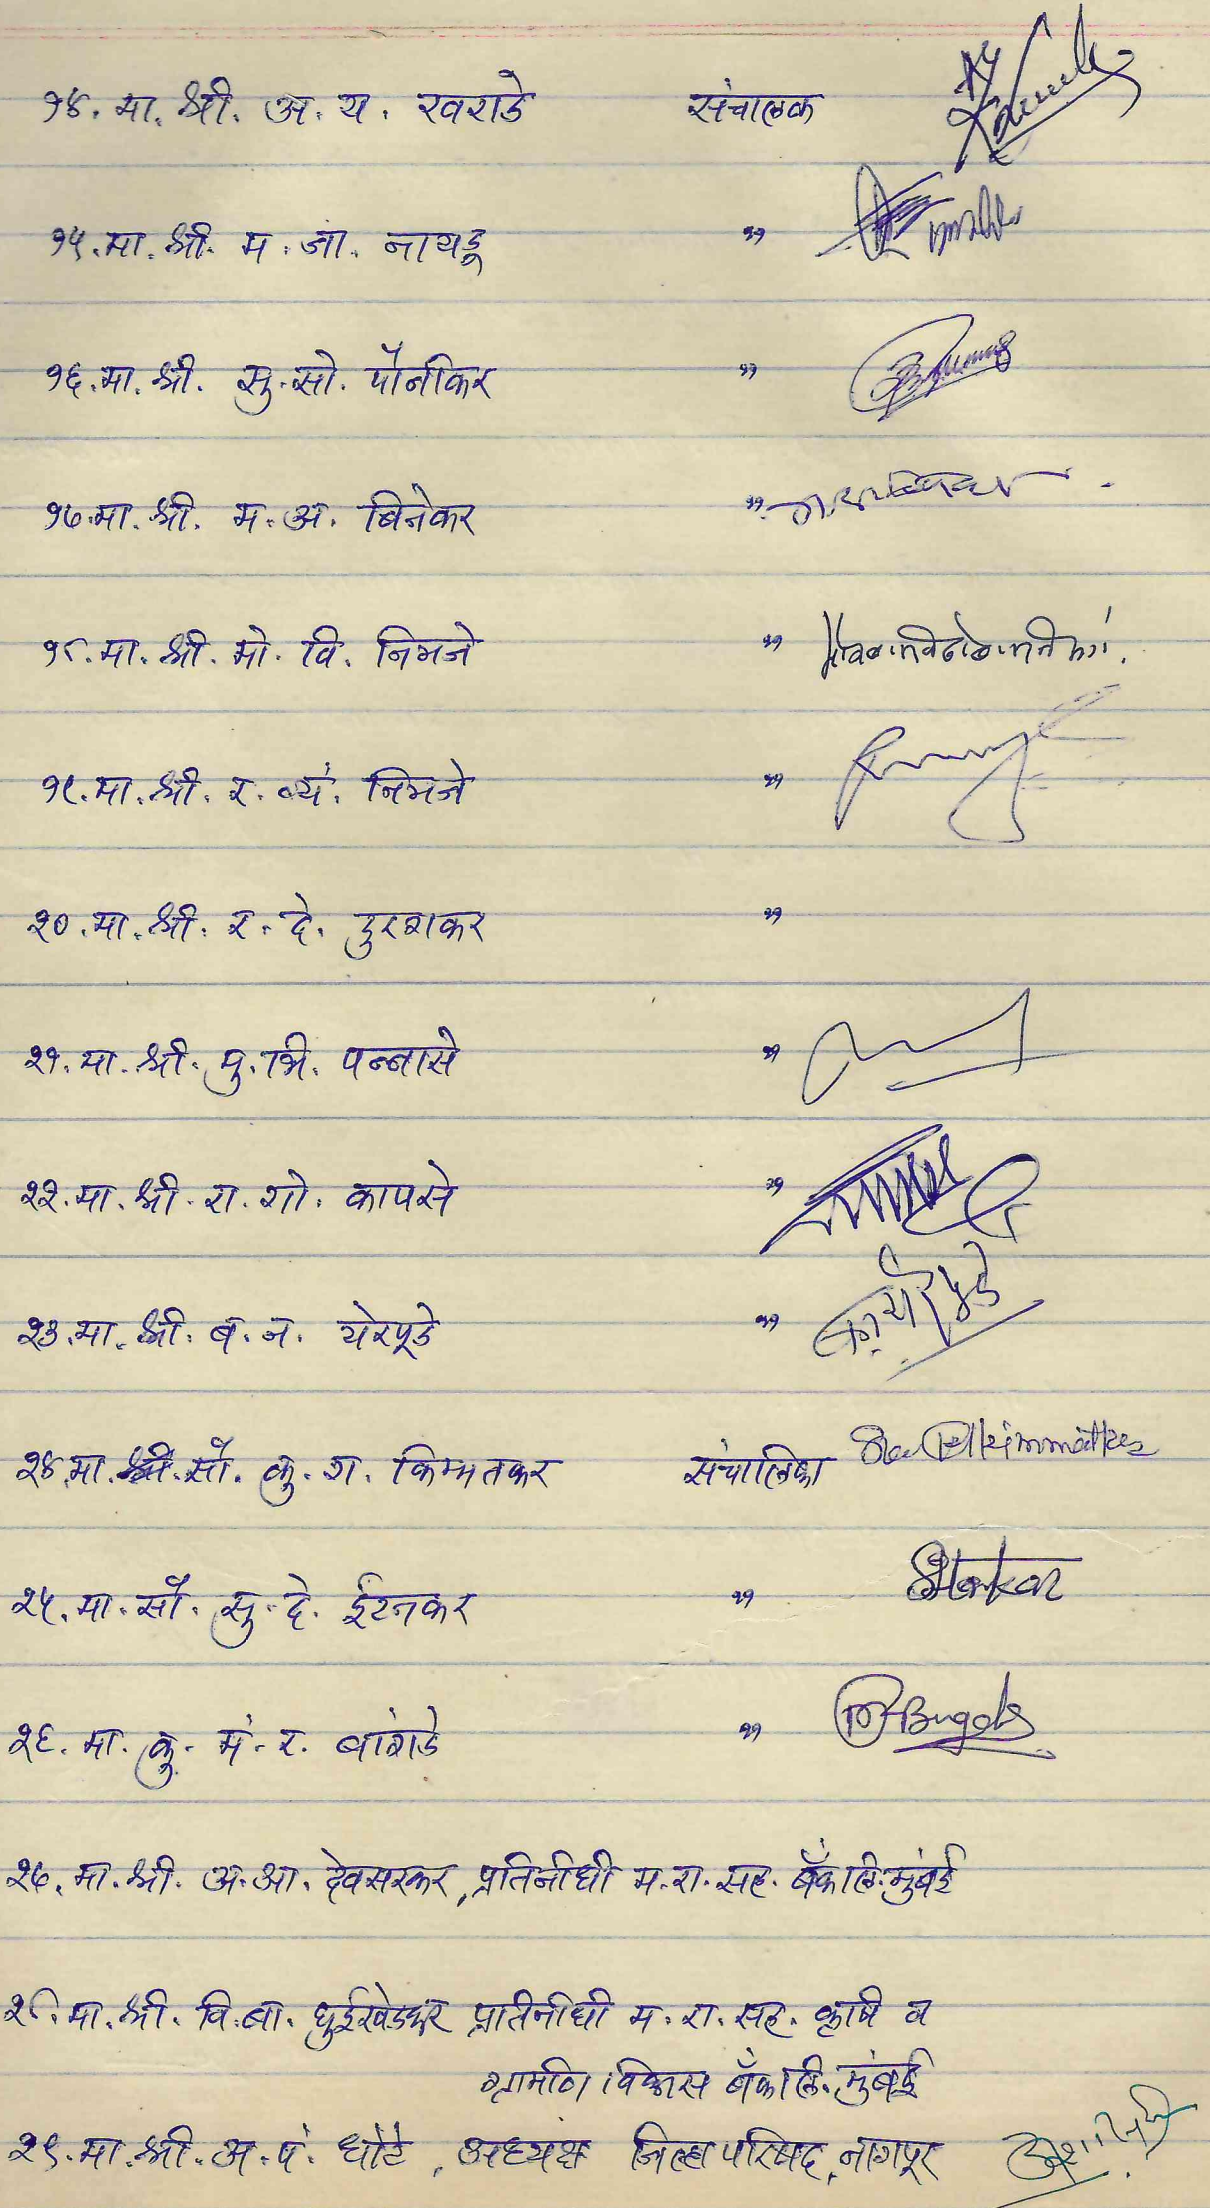 १४. मा. श्री. अ. य. खराडे संचालक
१५. मा. श्री. म. जा. नायडू "
१६. मा. श्री. सु. सो. पौनीकर "
१७. मा. श्री. म. अ. बिनेकर "
१८. मा. श्री. मो. वि. निमजे "
१९. मा. श्री. र. व्यं. निमजे "
२०. मा. श्री. र. दे. दुरुगकर "
२१. मा. श्री. पु. भि. पन्नासे "
२२. मा. श्री. रा. गो. कापसे "
२३. मा. श्री. ब. न. येरपूडे "
२४. मा. सौ. कु. ग. किम्मतकर संचालिका
२५. मा. सौ. सु. दे. ईटनकर " Itankar
२६. मा. कु. मं. र. बांगडे "
२७. मा. श्री. अ. आ. देवसरकर, प्रतिनीधी म. रा. सह. बँक लि. मुंबई
२८. मा. श्री. वि. बा. घुईखेडकर प्रतिनीधी म. रा. सह. कृषि व
ग्रामीण विकास बँक लि. मुंबई
२९. मा. श्री. अ. पं. धोटे, अध्यक्ष जिल्हा परिषद, नागपूर